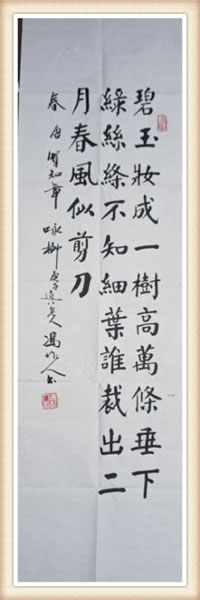 碧玉妝成一樹高萬條垂下
綠絲絛不知細葉誰裁出二
月春風似剪刀
唐賀知章 咏柳